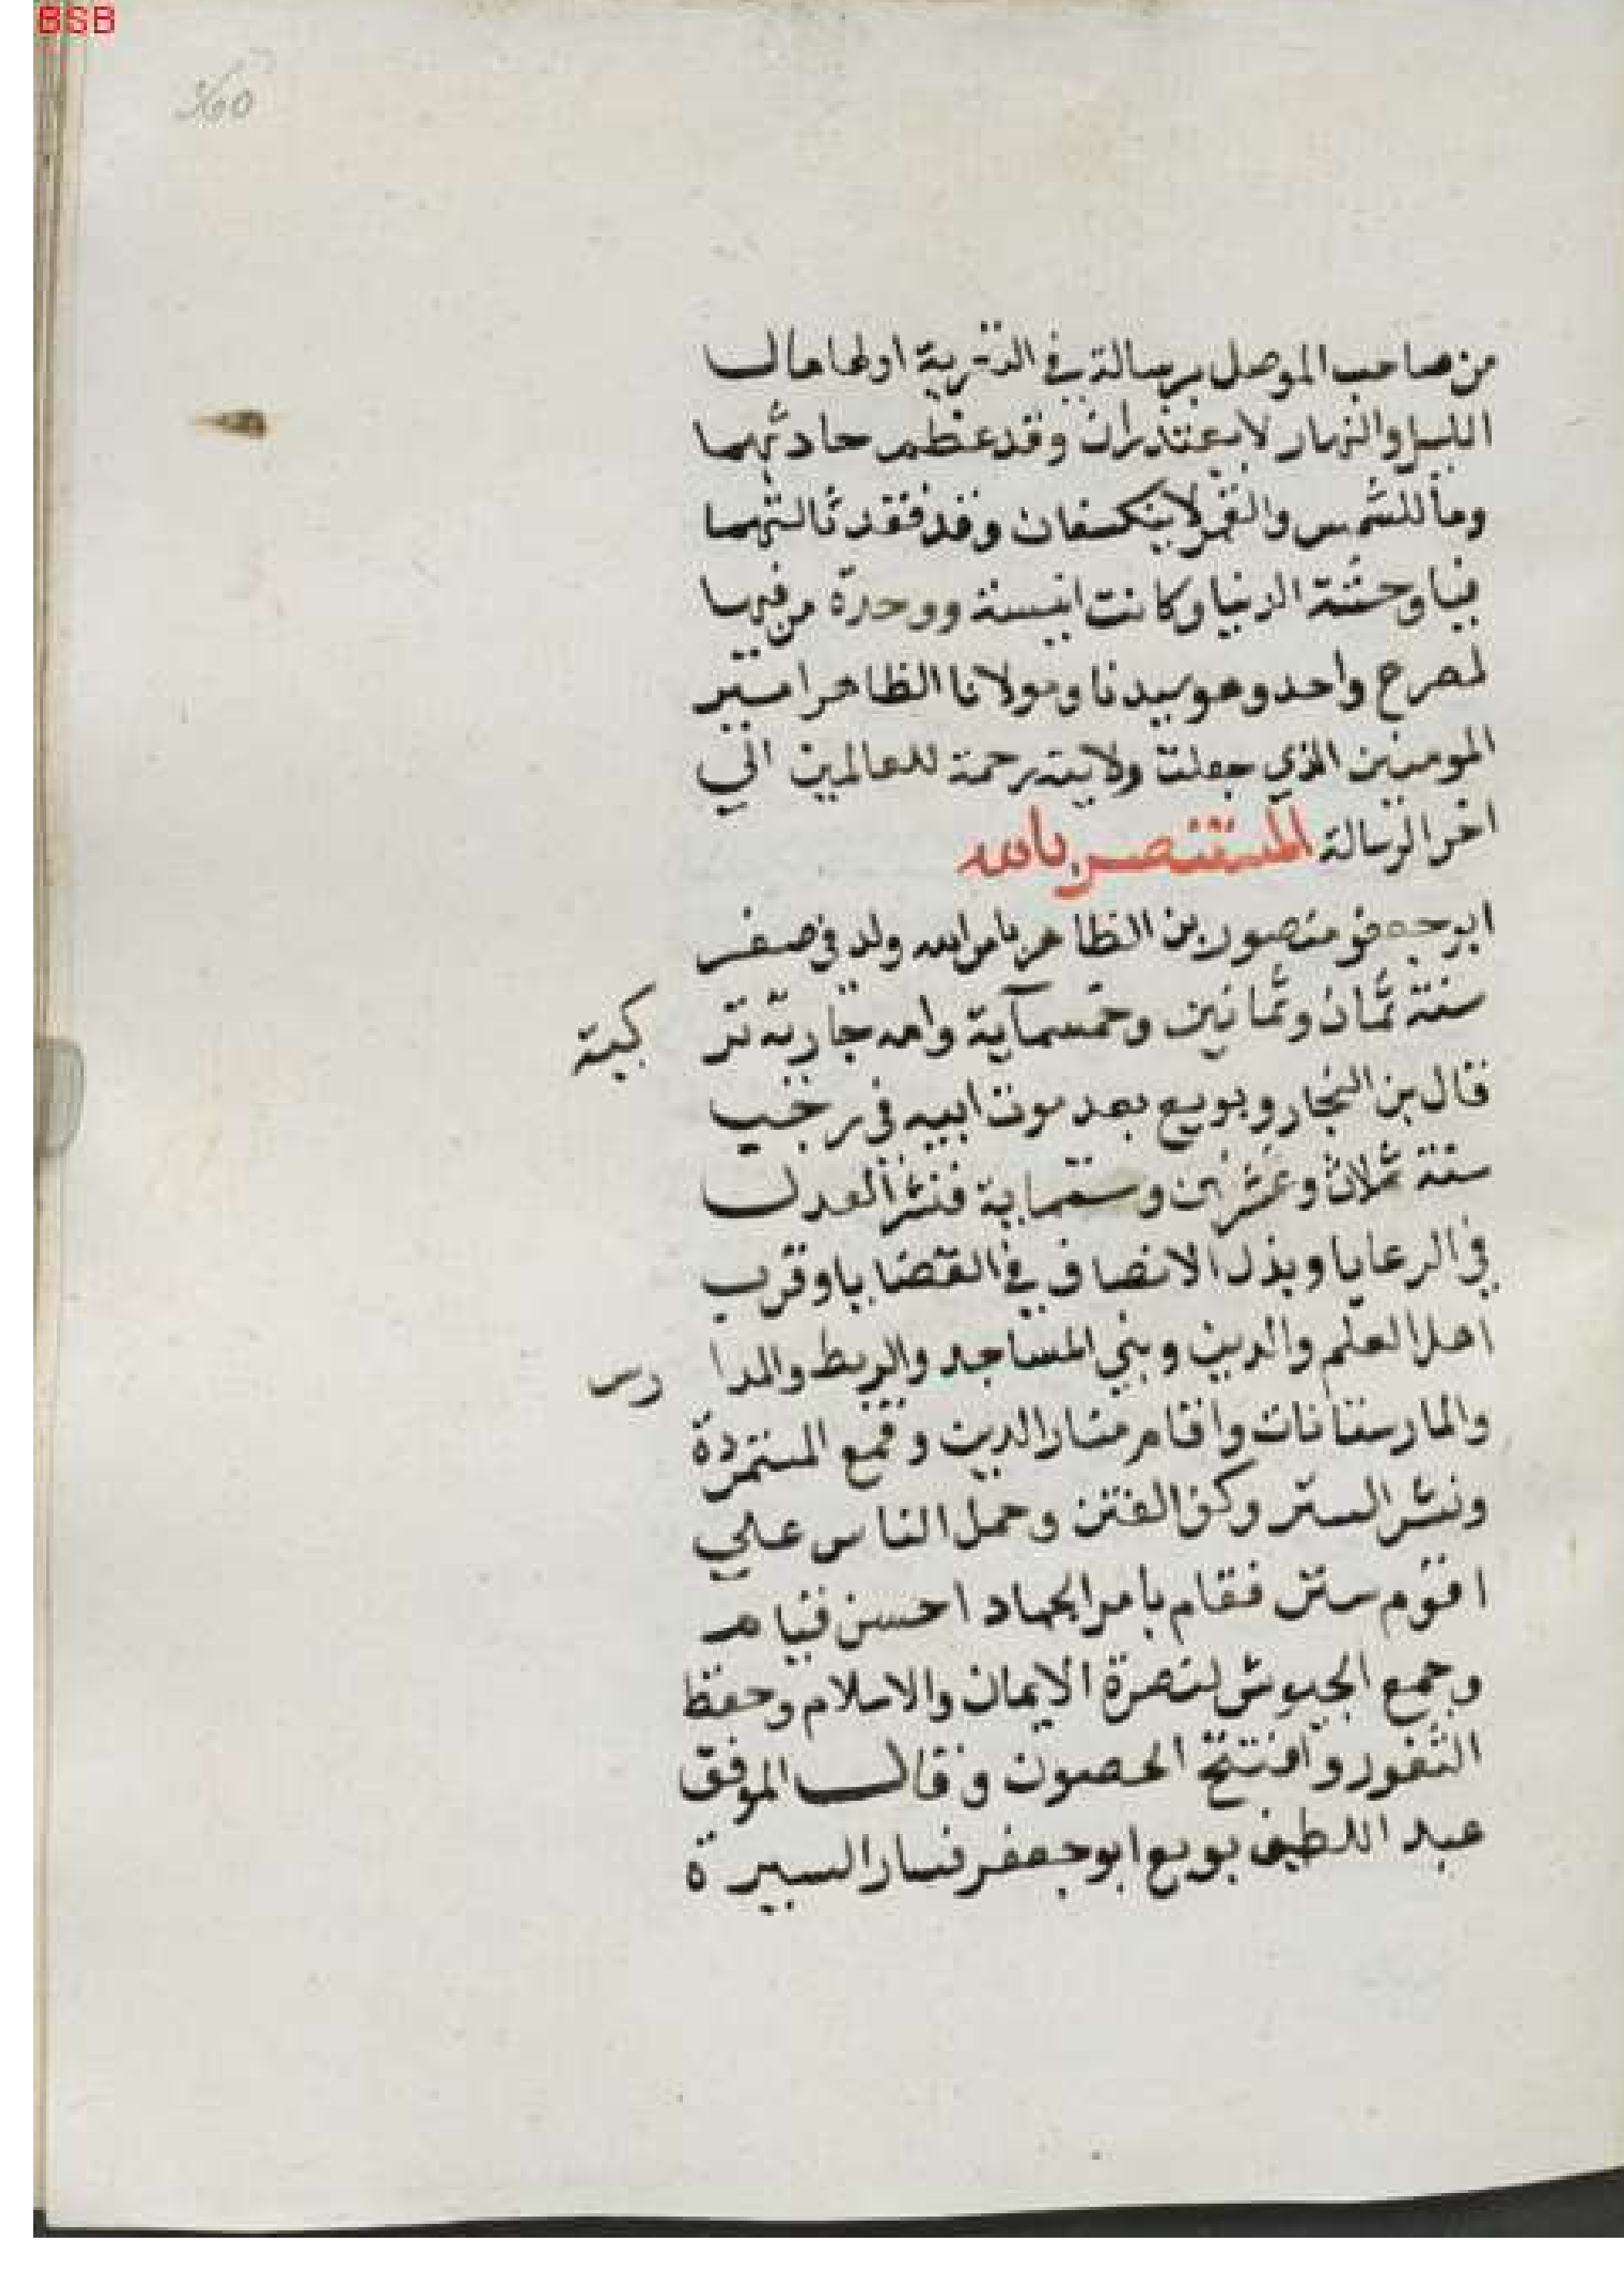 BSB
360
من صاحب الموصل برسالة في التعزية اولها مال
الليل والنهار لا يعتذران وقد عظم حادثهما
وما للشمس والقمر لا ينكسفان وقد فقد ثالثهما
فيا وحشتة الدنيا وكانت انيسة ووحدة من فيها
لمصرع واحد وهو سيدنا ومولانا الظاهر امير
المومنين الذي جعلت ولايته رحمة للعالمين الي
اخر الرسالة المستنصر بالله
ابو جعفر منصور بن الظاهر بامر الله ولد في صفر
سنة ثمان وثمانين وخمسمآية وامه جارية تركية
قال بن النجار وبويع بعد موت ابيه في رجب
سنة ثلاث وعشرين وستماية فنشر العدل
في الرعايا وبذل الانصاف في القضايا وقرب
اهل العلم والدين وبني المساجد والربط والمدارس
والمارستانات واقام منار الدين وقمع المتمردة
ونشر السنن وكف الفتن وحمل الناس علي
اقوم سنن فقام بامر الجهاد احسن قيام
وجمع الجيوش لنصرة الايمان والاسلام وحفظ
الثغور وافتتح الحصون وقال الموفق
عبد اللطيف بويع ابو جعفر فسار السيرة